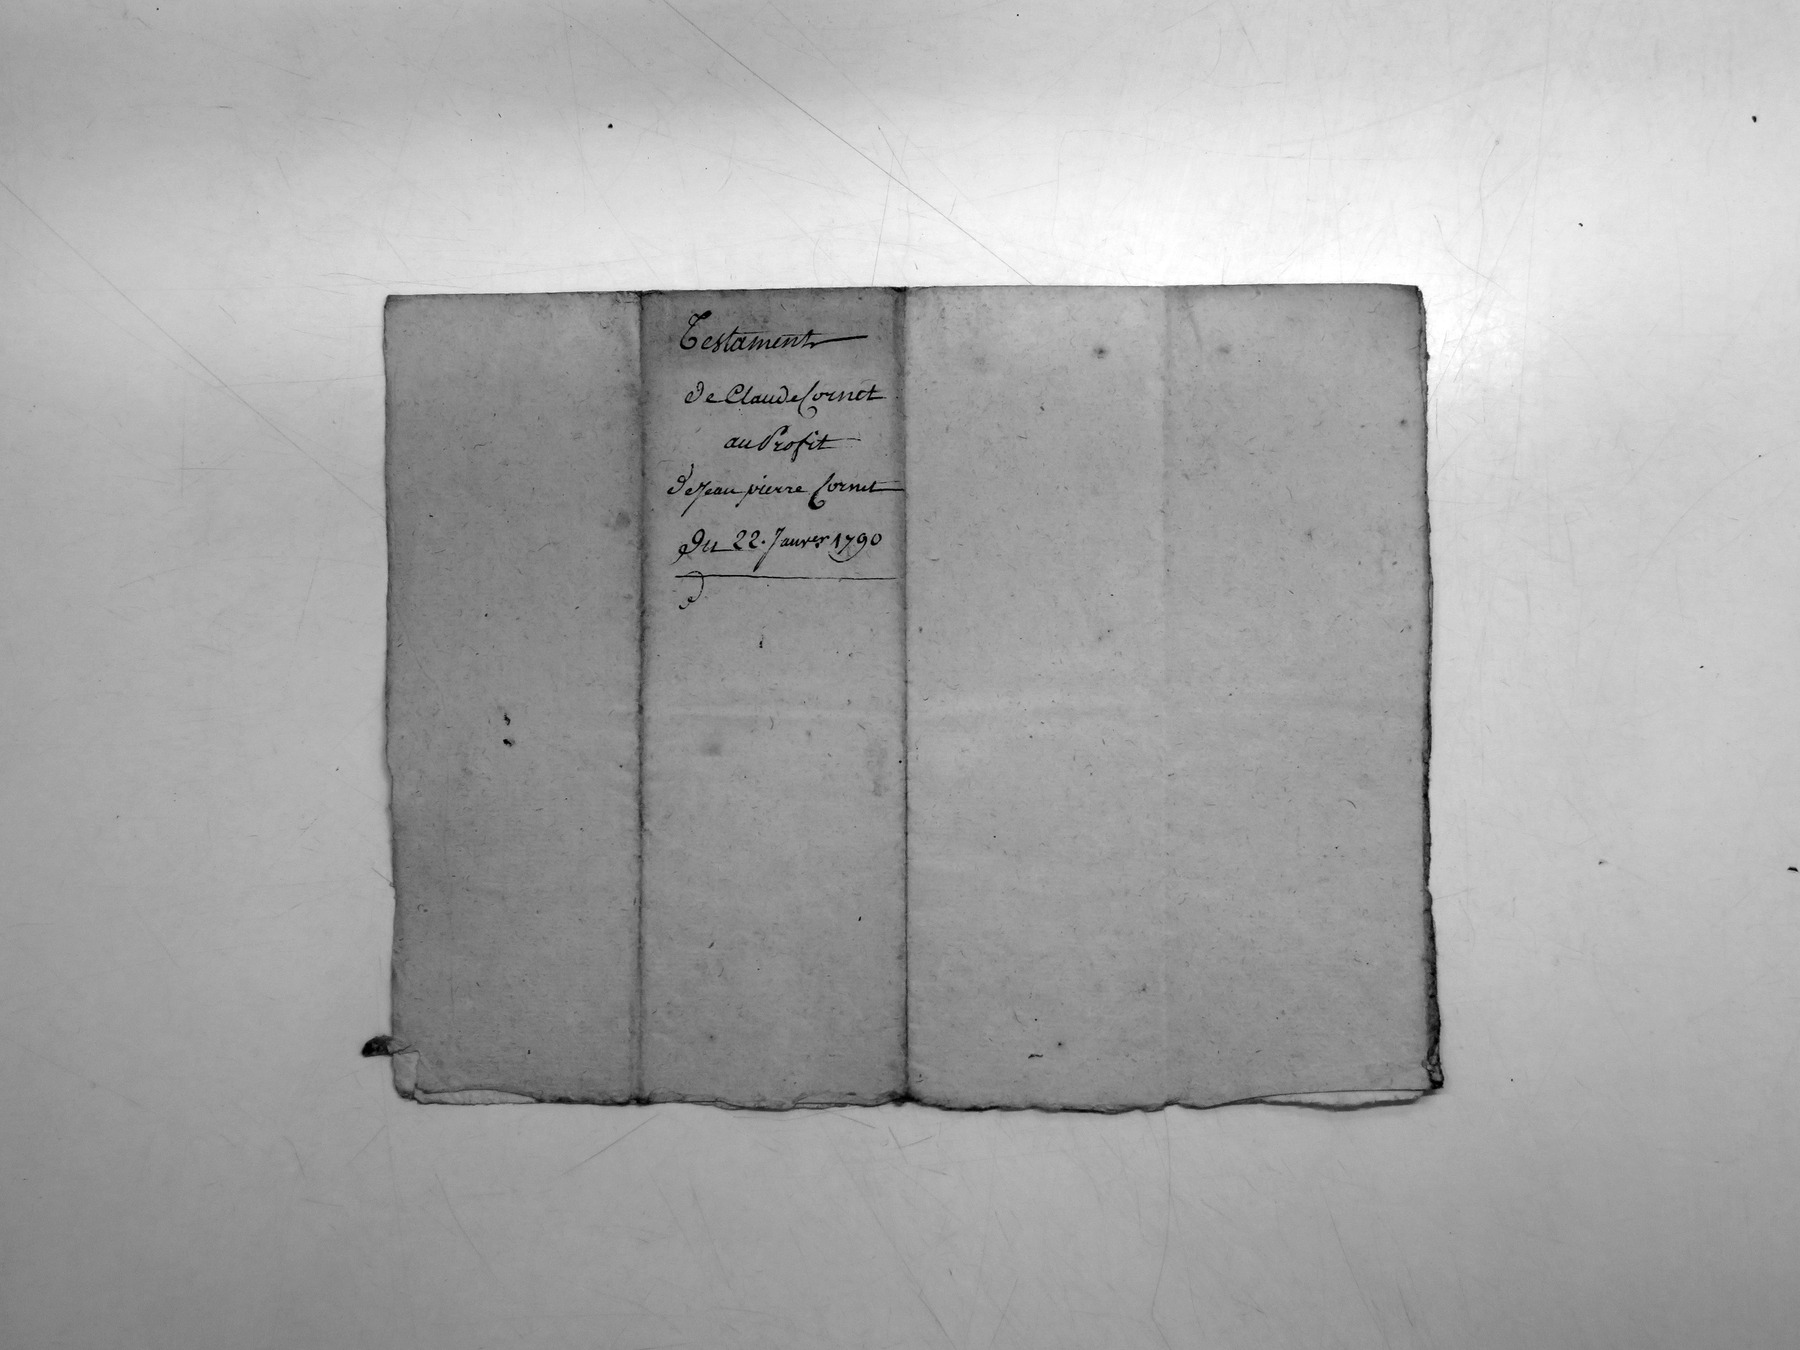 Testament
de Claude Cornet
au Profit
de Jean pierre Cornet
Du 22. Janver 1790